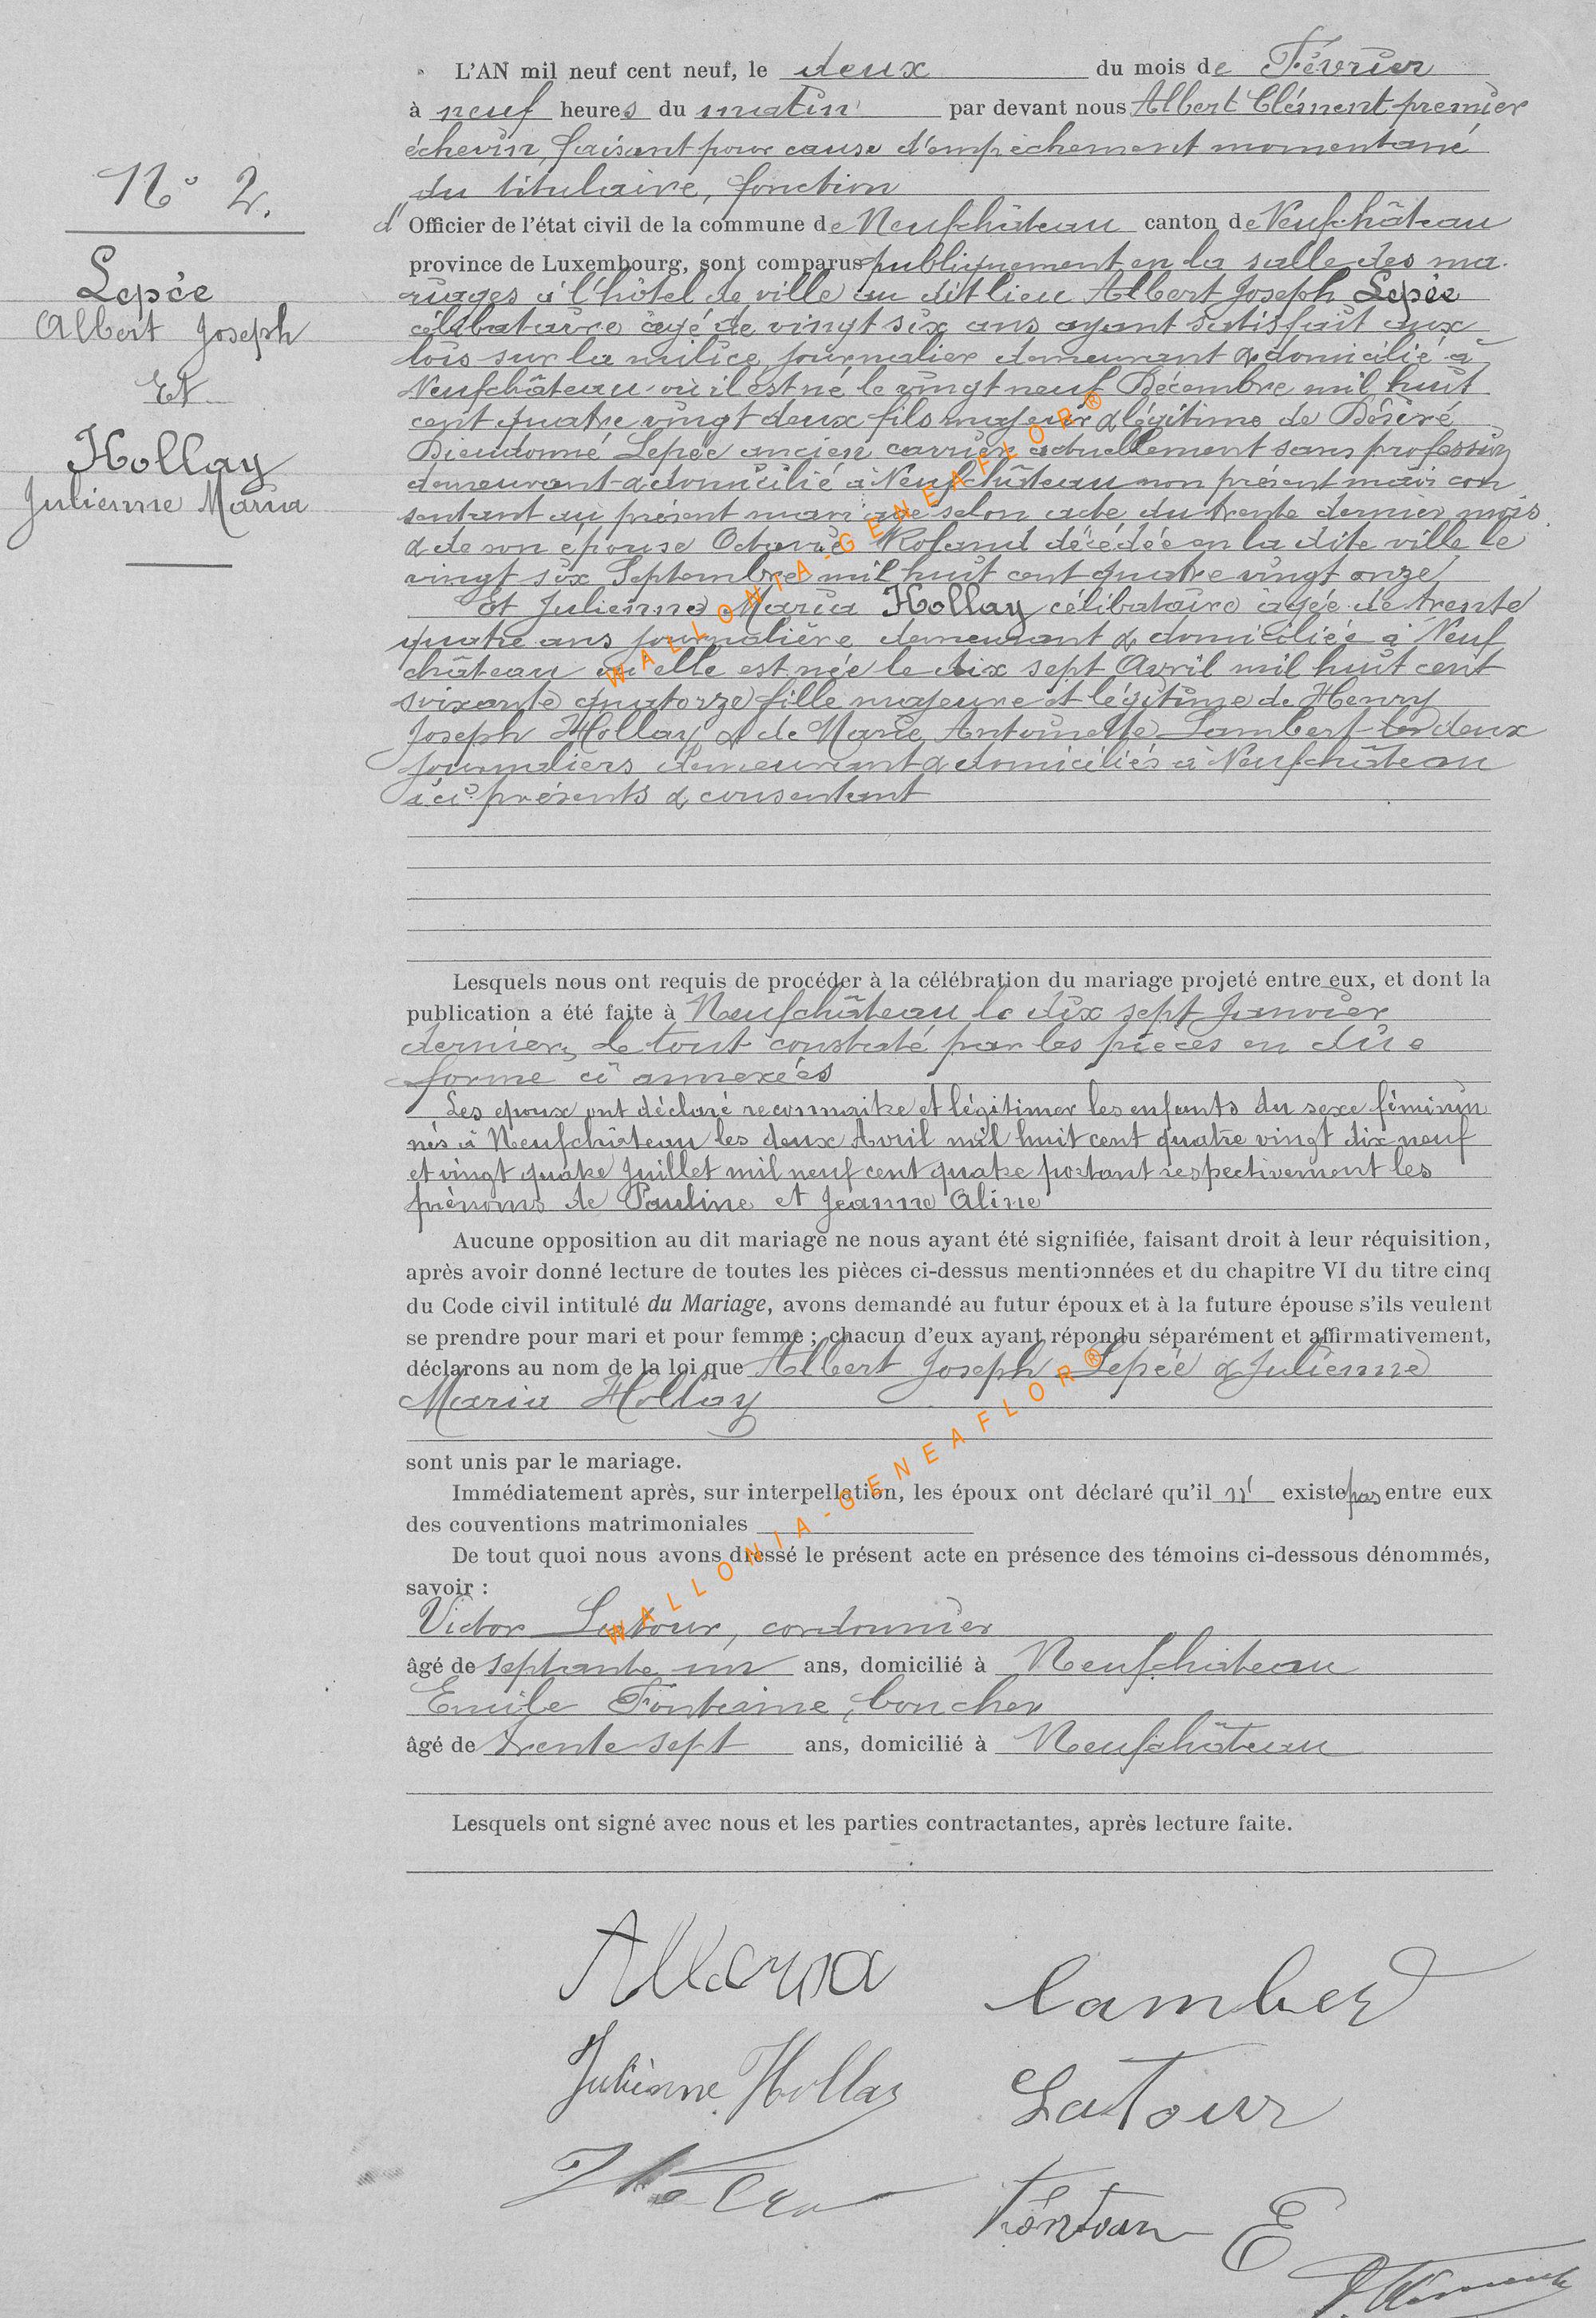 N° 2.
Lepée
Albert Joseph
Et
Hollay
Julienne Maria
L'AN mil neuf cent neuf, le deux du mois de Février
à neuf heures du matin par devant nous Albert Clément premier
échevin, faisant pour cause d'empêchement momentané
du titulaire, fonction
d' Officier de l'état civil de la commune de Neufchâteau canton de Neufchâteau
province de Luxembourg, sont comparus publiquement en la salle des ma-
riages à l'hôtel de ville au dit lieu Albert Joseph Lepée
célibataire âgé de vingt six ans ayant satisfait aux
lois sur la milice, journalier demeurant & domicilié à
Neufchâteau où il est né le vingt neuf Décembre mil huit
cent quatre vingt deux fils majeur & légitime de Désiré
Dieudonné Lepée ancien carrier actuellement sans profession
demeurant & domicilié à Neufchâteau non présent mais con
sentant au présent mariage selon acte du trente dernier mois
& de son épouse Octavie Roland décédée en la dite ville le
vingt six Septembre mil huit cent quatre vingt onze
Et Julienne Maria Hollay célibataire âgée de trente
quatre ans journalière demeurant & domiciliée à Neuf
château où elle est née le dix sept Avril mil huit cent
soixante quatorze fille majeure et légitime de Henry
Joseph Hollay & de Marie Antoinette Lambert les deux
journaliers demeurant & domiciliés à Neufchâteau
ici présents & consentant
Lesquels nous ont requis de procéder à la célébration du mariage projeté entre eux, et dont la
publication a été faite à Neufchâteau le dix sept Janvier
dernier, le tout constaté par les pièces en due
forme ci annexées
Les époux ont déclaré reconnaitre et légitimer les enfants du sexe féminin
nés à Neufchâteau les deux Avril mil huit cent quatre vingt dix neuf
et vingt quatre Juillet mil neuf cent quatre portant respectivement les
prénoms de Pauline et Jeanne Aline
Aucune opposition au dit mariage ne nous ayant été signifiée, faisant droit à leur réquisition,
après avoir donné lecture de toutes les pièces ci-dessus mentionnées et du chapitre VI du titre cinq
du Code civil intitulé du Mariage, avons demandé au futur époux et à la future épouse s'ils veulent
se prendre pour mari et pour femme ; chacun d'eux ayant répondu séparément et affirmativement,
déclarons au nom de la loi que Albert Joseph Lepée & Julienne
Maria Hollay
sont unis par le mariage.
Immédiatement après, sur interpellation, les époux ont déclaré qu'il n' existe pas entre eux
des couventions matrimoniales
De tout quoi nous avons dressé le présent acte en présence des témoins ci-dessous dénommés,
savoir :
Victor Latour, cordonnier
âgé de septante un ans, domicilié à Neufchateau
Emile Fontaine, boucher
âgé de trente sept ans, domicilié à Neufchâteau
Lesquels ont signé avec nous et les parties contractantes, après lecture faite.
Lamber
Julienne Hollay
Latour
E
WALLONIA-GENEAFLOR®
WALLONIA-GENEAFLOR®